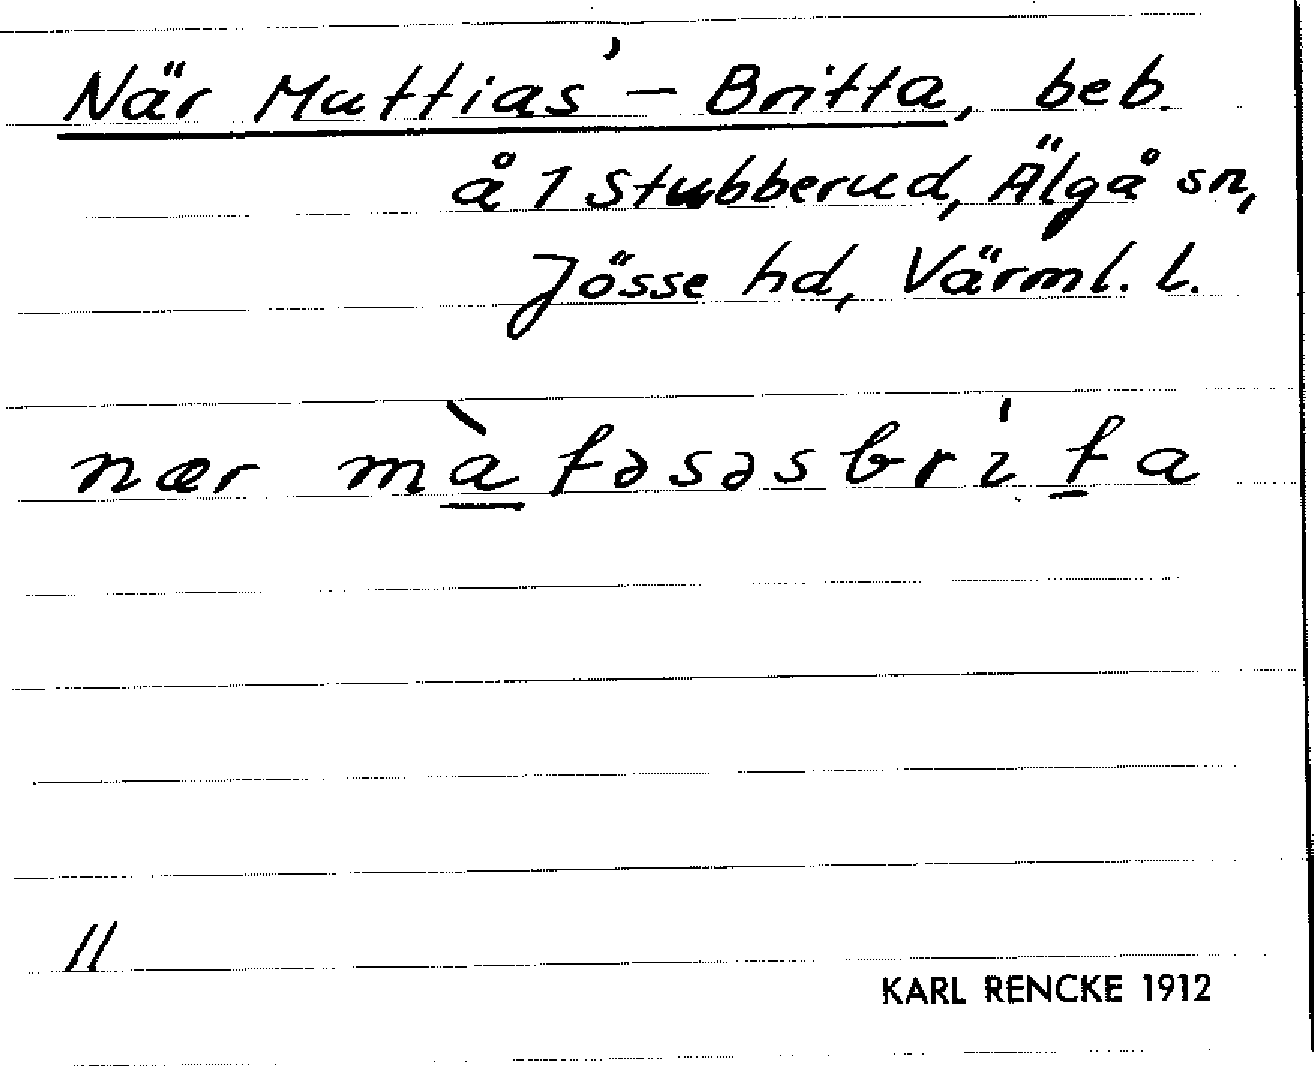 När Mattias' - Britta, beb.
å 1 Stubberud, Älgå sn,
Jösse hd, Värml. l.
nær màtəsəsbrıta
11
KARL RENCKE 1912